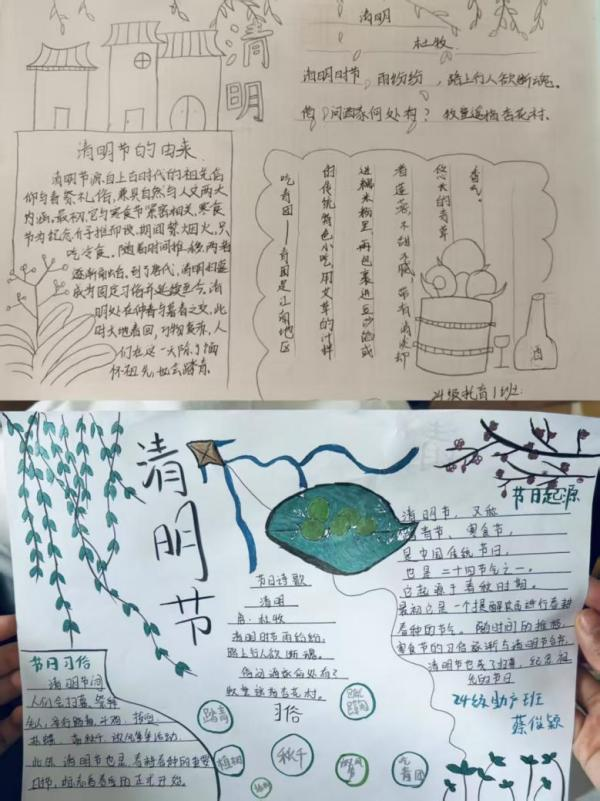 清明
清明
杜牧
清明时节 雨纷纷，路上行人欲断魂。
借问酒家何处有？牧童遥指杏花村。
清明节的由来
清明节源自上古时代的祖先信
仰与春祭礼俗，兼具自然与人文两大
内涵。最初，它与寒食节紧密相关，寒食
节为纪念介子推而设，期间禁火，只
吃冷食。随着时间推移，两者
逐渐融合，到了唐代，清明扫墓
成为固定习俗并延续至今，清
明处在仲春与暮春之交，此
时大地春回，万物复苏，人
们在这一天除了缅
怀祖先，也会踏青。
香气。
悠长的青草
着莲蓉，不甜不腻，带有清淡却
进糯米粉里，再包裹进豆沙馅或
的传统特色小吃，用艾草的汁拌
吃青团——青团是江南地区
酒
24级托育1班
清明节
节日起源
清明节，又称
踏青节、寒食节，
是中国传统节日，
也是二十四节气之一。
它起源于春秋时期。
最初它是一个提醒农民进行春耕
春种的节气。随时间的推移，
寒食节的习俗逐渐与清明节合并，
清明节也成了扫墓、纪念祖
先的节日
24级助产班
蔡俊颖
节日诗歌
清明
唐·杜牧
清明时节雨纷纷，
路上行人欲断魂。
借问酒家何处有？
牧童遥指杏花村。
习俗
踏青
植树
秋千
吃青团
节日习俗
清明节间
人们会扫墓、祭祀
先人，举行踏青、斗鸡、拔河、
此外，清明节也是春耕春种的重要